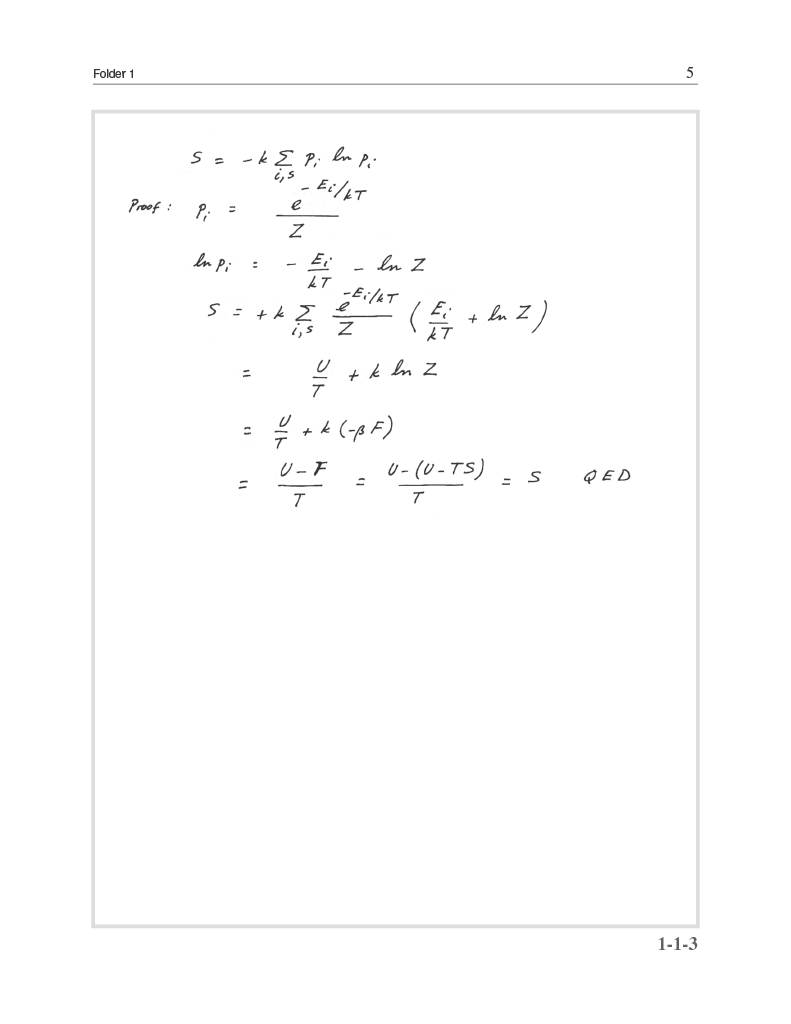 Folder 1 5
S = -k Σ_{i,s} p_i ln p_i
Proof: p_i = e^{-E_i/kT} / Z
ln p_i = - E_i/kT - ln Z
S = +k Σ_{i,s} e^{-E_i/kT} / Z ( E_i/kT + ln Z )
= U/T + k ln Z
= U/T + k (-βF)
= (U-F)/T = (U-(U-TS))/T = S QED
1-1-3